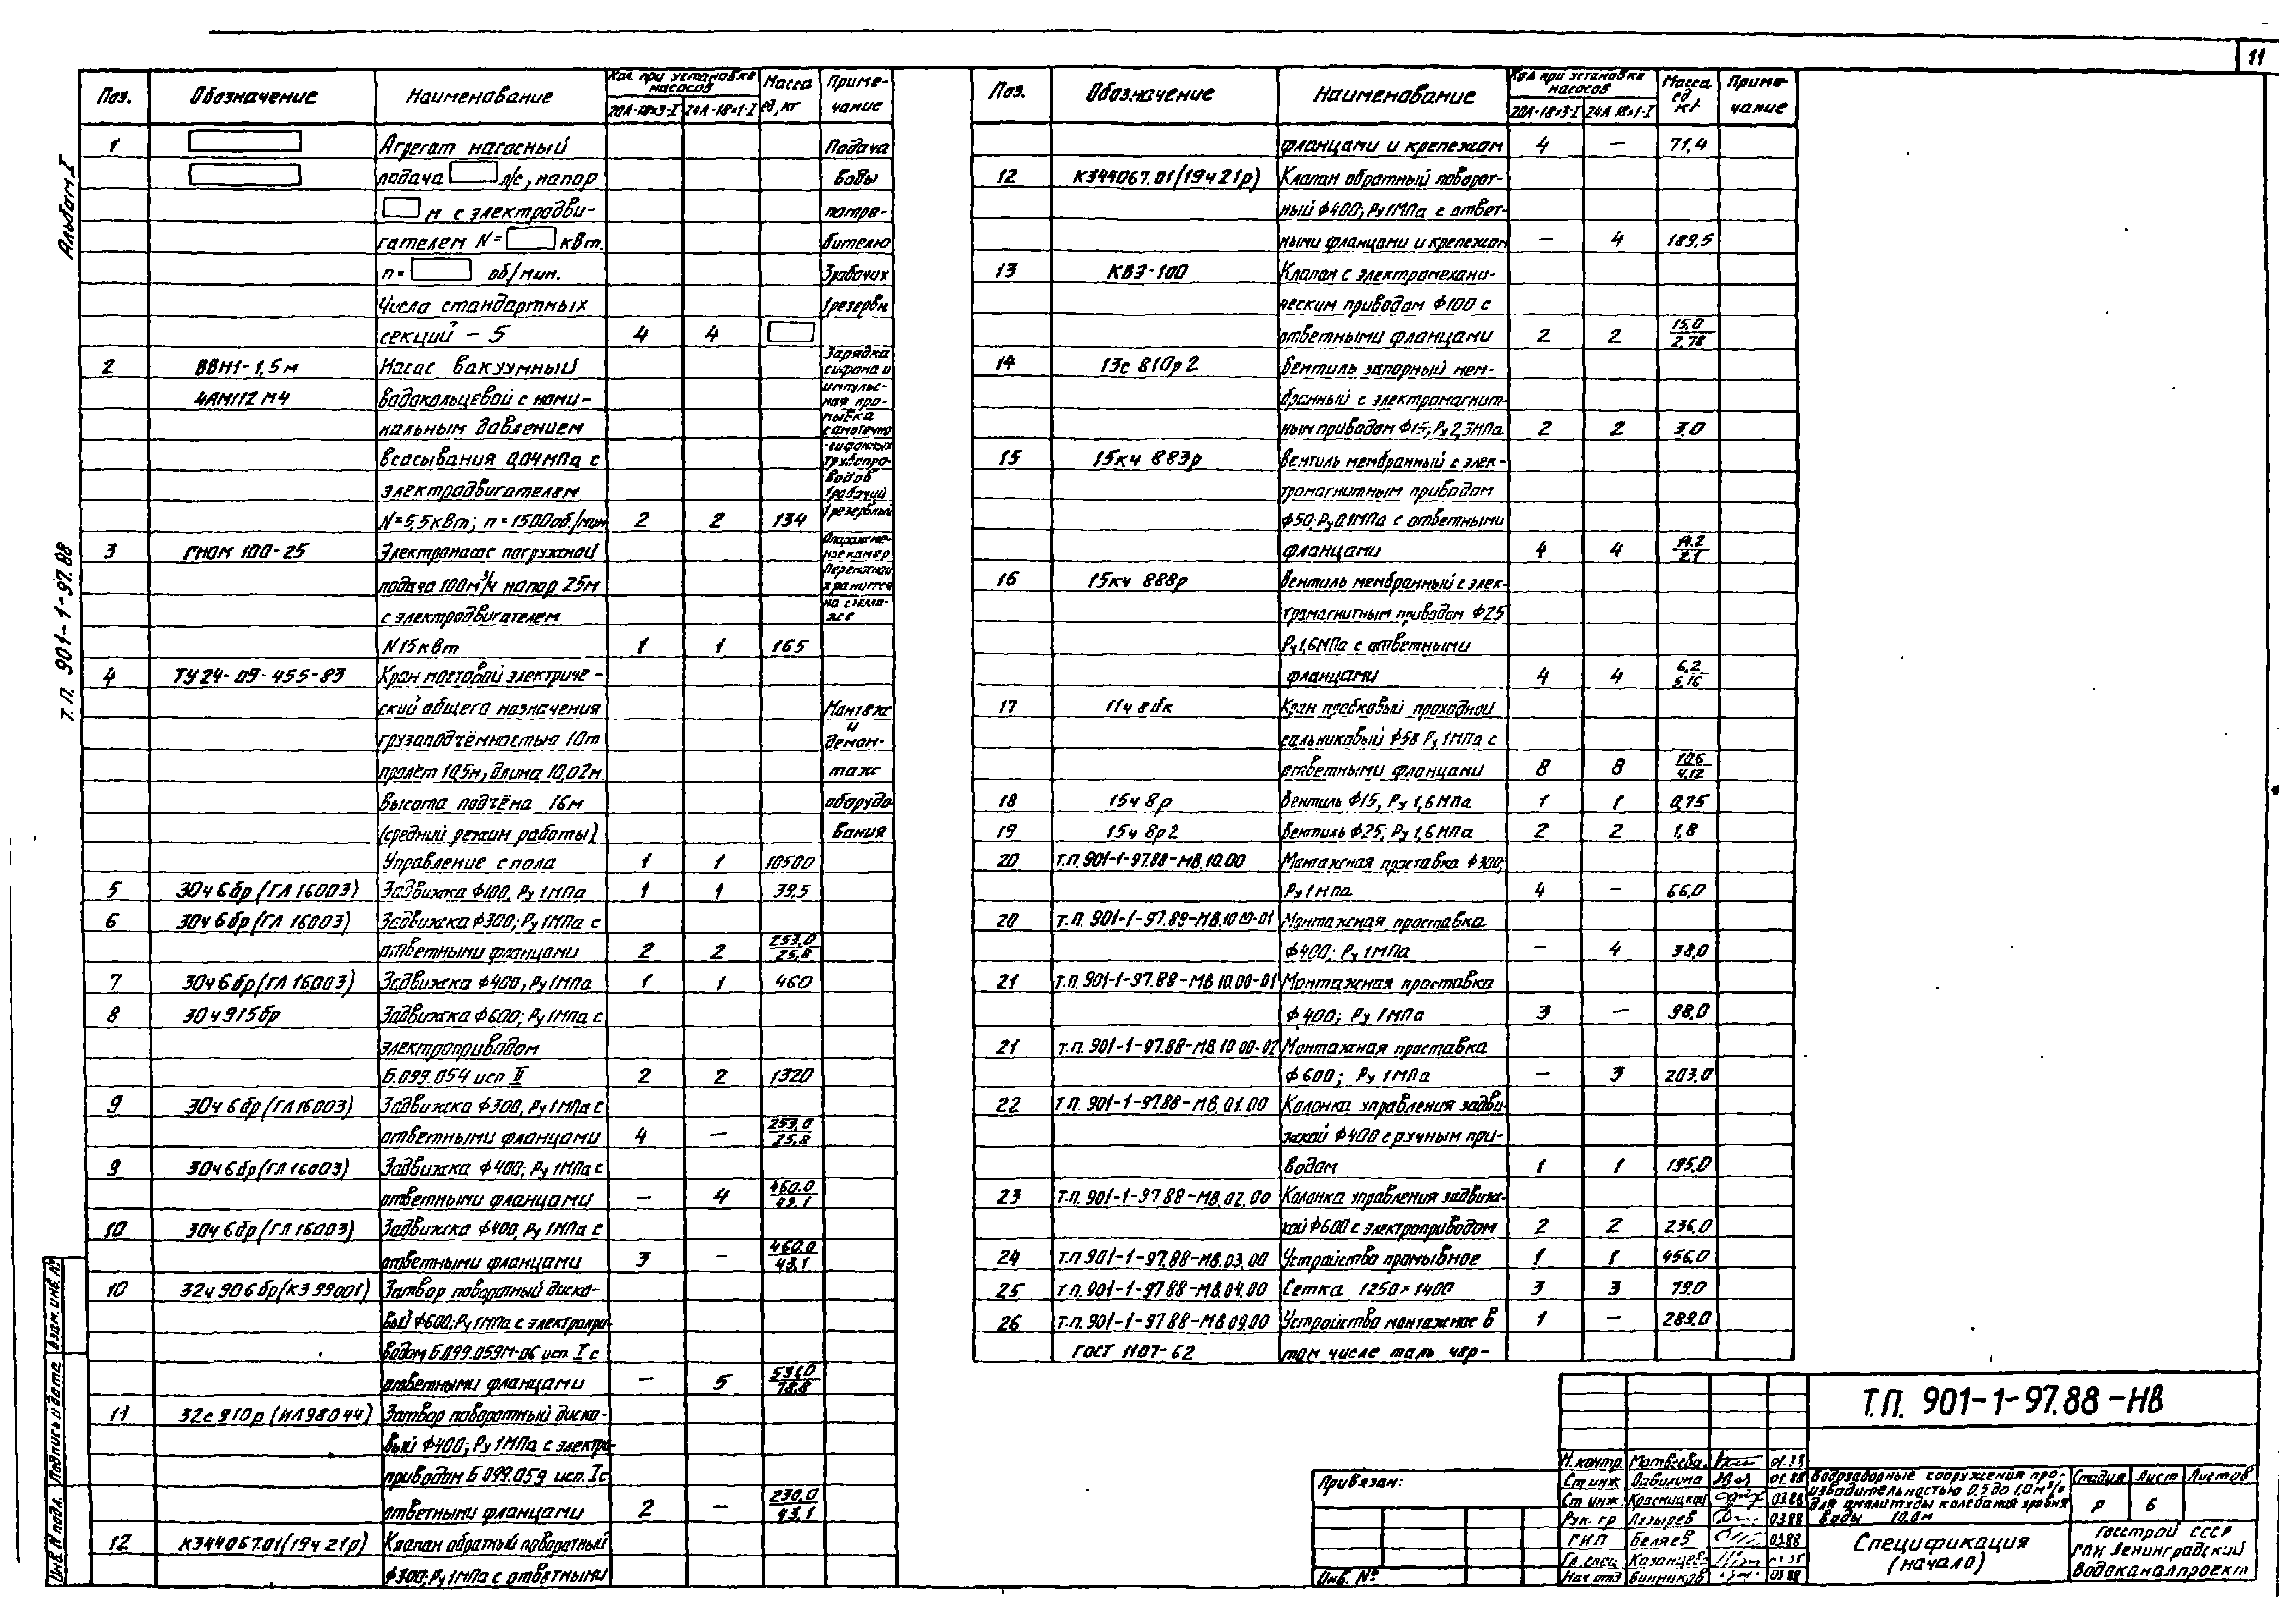 11
Альбом I
Т.П. 901-1-97.88
Поз. Обозначение Наименование Кол. при установке насосов Масса ед, кг Приме-чание
20А-18×3-I 24А-18×1-I
1 Агрегат насосный Подача
подача л/с, напор воды
м с электродви- потре-
гателем N= кВт. бителю
n= об/мин. 3 рабочих
Число стандартных 1 резервн.
секций - 5 4 4
2 ВВН1-1,5м Насос вакуумный Зарядка сифона и
4АМ112М4 водокольцевой с номи- импульс-ная про-мывка
нальным давлением самотечно
всасывания 0,04МПа с -сифонных трубопро-
электродвигателем водов 1рабочий
N=5,5кВт; n=1500об./мин 2 2 134 1резервный
3 ГНОМ 100-25 Электронасос погружной Опорожне-ние камер
подача 100м³/ч напор 25м Переносной хранится
с электродвигателем на стелла-же
N15кВт 1 1 165
4 ТУ24-09-455-83 Кран мостовой электриче-
ский общего назначения Монтаж и
грузоподъёмностью 10т демон-
пролёт 10,5м, длина 10,02м. таж
высота подъёма 16м оборудо
(средний режим работы) вания
Управление с пола 1 1 10500
5 30ч6бр (ГЛ16003) Задвижка Ф100, Ру1МПа 1 1 39,5
6 30ч6бр (ГЛ16003) Задвижка Ф300; Ру1МПа с
ответными фланцами 2 2 253,0/25,8
7 30ч6бр (ГЛ16003) Задвижка Ф400, Ру1МПа 1 1 460
8 30ч915бр Задвижка Ф600; Ру1МПа с
электроприводом
Б.099.054 исп II 2 2 1320
9 30ч6бр (ГЛ16003) Задвижка Ф300, Ру1МПа с
ответными фланцами 4 — 253,0/25,8
9 30ч6бр (ГЛ16003) Задвижка Ф400; Ру1МПа с
ответными фланцами — 4 460.0/43.1
10 30ч6бр (ГЛ16003) Задвижка Ф400, Ру1МПа с
ответными фланцами 3 — 460.0/43,1
10 32ч906бр (КЭ99001) Затвор поворотный диско-
вый Ф600; Ру1МПа с электропри-
водом Б.099.059М-06 исп. I с
ответными фланцами — 5 531,0/78.8
11 32с910р (ИЛ98044) Затвор поворотный диско-
вый Ф400; Ру1МПа с электро-
приводом Б.099.059 исп. I с
ответными фланцами 2 — 230,0/43,1
12 К344067.01 (19ч21р) Клапан обратный поворотный
Ф300; Ру1МПа с ответными
Поз. Обозначение Наименование Кол при установке насосов Масса ед кг Приме-чание
20А-18×3-I 24А 18×1-I
фланцами и крепежом 4 — 71,4
12 К344067.01 (19ч21р) Клапан обратный поворот-
ный Ф400; Ру1МПа с ответ-
ными фланцами и крепежом — 4 189,5
13 КВЭ-100 Клапан с электромехани-
ческим приводом Ф100 с
ответными фланцами 2 2 15,0/2,78
14 13с 810р2 Вентиль запорный мем-
бранный с электромагнит-
ным приводом Ф15; Ру2,3МПа 2 2 3,0
15 15кч 883р Вентиль мембранный с элек-
тромагнитным приводом
Ф50 Ру0,1МПа с ответными
фланцами 4 4 14.2/2.1
16 15кч 888р Вентиль мембранный с элек-
тромагнитным приводом Ф25
Ру1,6МПа с ответными
фланцами 4 4 6,2/5,16
17 11ч8бк Кран пробковый проходной
сальниковый Ф50 Ру1МПа с
ответными фланцами 8 8 10,6/4,12
18 15ч8р Вентиль Ф15, Ру1,6МПа 1 1 0,75
19 15ч8р2 Вентиль Ф25; Ру1,6МПа 2 2 1,8
20 Т.П. 901-1-97.88-МВ.10.00 Монтажная проставка Ф300;
Ру1МПа 4 — 66,0
20 Т.П. 901-1-97.88-МВ.10.00-01 Монтажная проставка
Ф400; Ру1МПа — 4 38,0
21 Т.П. 901-1-97.88-МВ.10.00-01 Монтажная проставка
Ф400; Ру1МПа 3 — 98,0
21 Т.П. 901-1-97.88-МВ.10.00-02 Монтажная проставка
Ф600; Ру1МПа — 3 203.0
22 Т.П. 901-1-97.88-МВ.01.00 Колонка управления задви-
жкой Ф400 с ручным при-
водом 1 1 195,0
23 Т.П. 901-1-97.88-МВ.02.00 Колонка управления задвиж-
кой Ф600 с электроприводом 2 2 236,0
24 Т.П. 901-1-97.88-МВ.03.00 Устройство промывное 1 1 456,0
25 Т.П. 901-1-97.88-МВ.04.00 Сетка 1250×1400 3 3 79.0
26 Т.П. 901-1-97.88-МВ.09.00 Устройство монтажное в 1 — 289.0
ГОСТ 1107-62 том числе таль чер-
Инв. N подл. Подпись и дата Взам. инв. N
Привязан:
Инв. N°
Т.П. 901-1-97.88-НВ
Н. контр. Матвеева
Ст инж 01.88
Ст инж. Красницкий 03.88
Рук. гр Пузырев 03.88
ГИП Беляев 03.88
Гл. спец. Казанцев
Нач отд Винников 03.88
Водозаборные сооружения про-
изводительностью 0,5 до 1,0м³/с
для амплитуды колебания уровня
воды 10.0м
Стадия Лист Листов
Р 6
Спецификация
(начало)
Госстрой СССР
ГПИ Ленинградский
Водоканалпроект